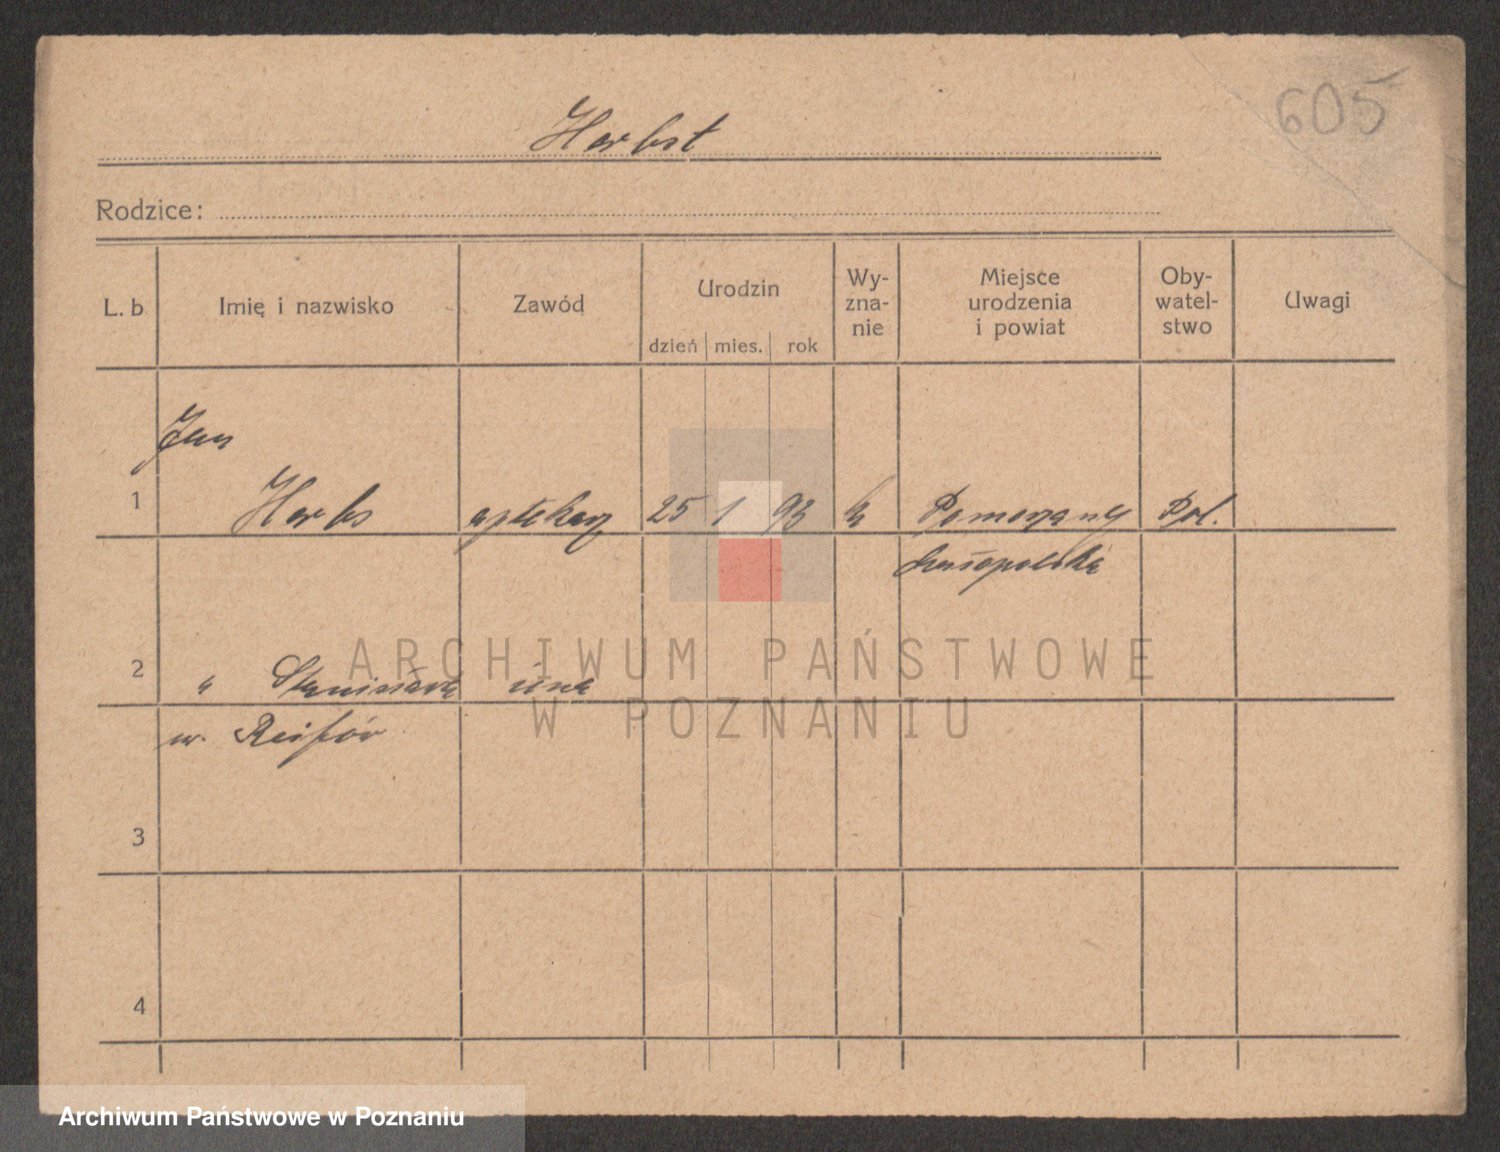 605
Herbst
Rodzice:
L. b Imię i nazwisko Zawód Urodzin dzień mies. rok Wy-zna-nie Miejsce urodzenia i powiat Oby-watel-stwo Uwagi
Jan
1 Herbs aptekarz 25 1 93 k Pomorzany Pol.
Małopolska
2 " Stanisława żona
ARCHIWUM PAŃSTWOWE
W POZNANIU
3
4
Archiwum Państwowe w Poznaniu